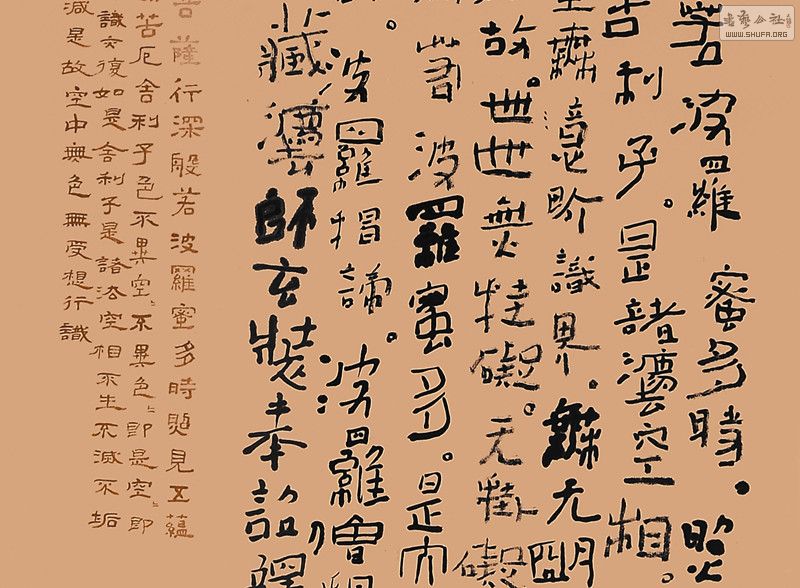 若波羅蜜多時。照
舍利子。是諸灋空相。
無意識界。無无明
故。世世無挂礙。无掛礙
若波羅蜜多。是大
波羅揭諦。波羅僧揭
藏灋師玄奘奉詔譯
菩薩行深般若波羅蜜多時照見五蘊
苦厄舍利子色不異空〻不異色〻即是空〻即
識亦復如是舍利子是諸法空相不生不滅不垢
滅是故空中無色無受想行識
書藝公社
WWW.SHUFA.ORG